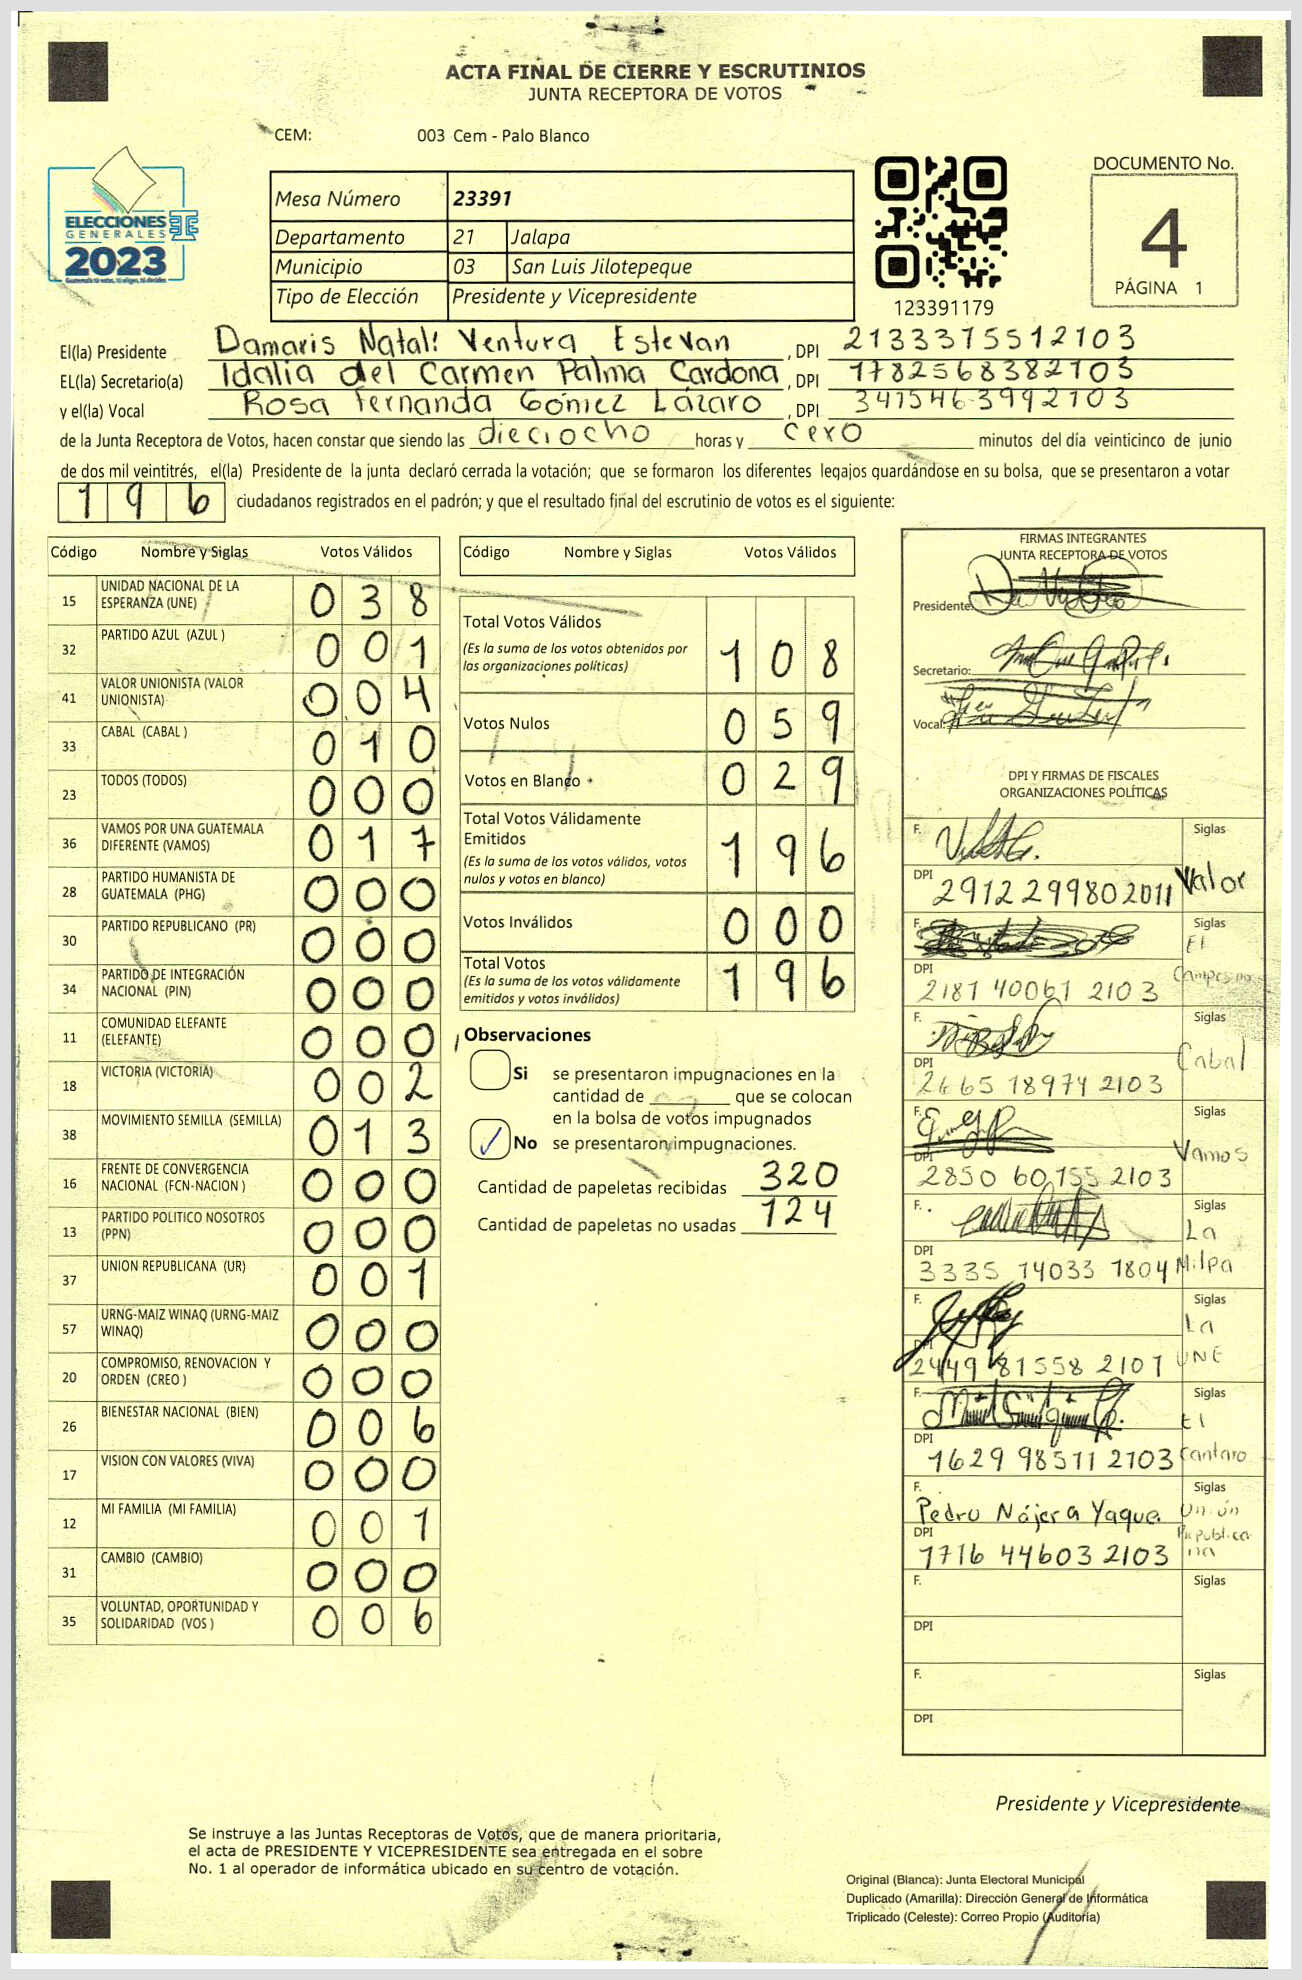 ACTA FINAL DE CIERRE Y ESCRUTINIOS
JUNTA RECEPTORA DE VOTOS
CEM: 003 Cem - Palo Blanco
ELECCIONES
GENERALES
2023
Mesa Número 23391
Departamento 21 Jalapa
Municipio 03 San Luis Jilotepeque
Tipo de Elección Presidente y Vicepresidente
123391179
DOCUMENTO No.
4
PÁGINA 1
El(la) Presidente Damaris Natali Ventura Estevan , DPI 2133375512103
EL(la) Secretario(a) Idalia del Carmen Palma Cardona , DPI 1782568382103
y el(la) Vocal Rosa Fernanda Gómez Lázaro , DPI 3415463992103
de la Junta Receptora de Votos, hacen constar que siendo las dieciocho horas y cero minutos del día veinticinco de junio
de dos mil veintitrés, el(la) Presidente de la junta declaró cerrada la votación; que se formaron los diferentes legajos quardándose en su bolsa, que se presentaron a votar
196 ciudadanos registrados en el padrón; y que el resultado final del escrutinio de votos es el siguiente:
Código Nombre y Siglas Votos Válidos
15 UNIDAD NACIONAL DE LA ESPERANZA (UNE) 038
32 PARTIDO AZUL (AZUL ) 001
41 VALOR UNIONISTA (VALOR UNIONISTA) 004
33 CABAL (CABAL ) 010
23 TODOS (TODOS) 000
36 VAMOS POR UNA GUATEMALA DIFERENTE (VAMOS) 017
28 PARTIDO HUMANISTA DE GUATEMALA (PHG) 000
30 PARTIDO REPUBLICANO (PR) 000
34 PARTIDO DE INTEGRACIÓN NACIONAL (PIN) 000
11 COMUNIDAD ELEFANTE (ELEFANTE) 000
18 VICTORIA (VICTORIA) 002
38 MOVIMIENTO SEMILLA (SEMILLA) 013
16 FRENTE DE CONVERGENCIA NACIONAL (FCN-NACION ) 000
13 PARTIDO POLITICO NOSOTROS (PPN) 000
37 UNION REPUBLICANA (UR) 001
57 URNG-MAIZ WINAQ (URNG-MAIZ WINAQ) 000
20 COMPROMISO, RENOVACION Y ORDEN (CREO ) 000
26 BIENESTAR NACIONAL (BIEN) 006
17 VISION CON VALORES (VIVA) 000
12 MI FAMILIA (MI FAMILIA) 001
31 CAMBIO (CAMBIO) 000
35 VOLUNTAD, OPORTUNIDAD Y SOLIDARIDAD (VOS ) 006
Código Nombre y Siglas Votos Válidos
Total Votos Válidos 108
(Es la suma de los votos obtenidos por
las organizaciones políticas)
Votos Nulos 059
Votos en Blanco 029
Total Votos Válidamente
Emitidos 196
(Es la suma de los votos válidos, votos
nulos y votos en blanco)
Votos Inválidos 000
Total Votos 196
(Es la suma de los votos válidamente
emitidos y votos inválidos)
Observaciones
Si se presentaron impugnaciones en la
cantidad de ____ que se colocan
en la bolsa de votos impugnados
No se presentaron impugnaciones.
Cantidad de papeletas recibidas 320
Cantidad de papeletas no usadas 124
FIRMAS INTEGRANTES
JUNTA RECEPTORA DE VOTOS
Presidente:
Secretario:
Vocal:
DPI Y FIRMAS DE FISCALES
ORGANIZACIONES POLÍTICAS
F. Siglas
DPI 2912 29980 2011 Valor
F. Siglas
El
DPI 2187 40061 2103 Campesino
F. Siglas
DPI 2665 18974 2103 Cabal
F. Siglas
DPI 2850 60155 2103 Vamos
F. Siglas
La
DPI 3335 14033 1804 Milpa
F. Siglas
La
DPI 2449 81558 2101 UNE
F. Siglas
El
DPI 1629 98511 2103 Cantaro
F. Siglas
Pedro Nájera Yaque Unión
DPI 1716 44603 2103 Republicana
F. Siglas
DPI
F. Siglas
DPI
Presidente y Vicepresidente
Se instruye a las Juntas Receptoras de Votos, que de manera prioritaria,
el acta de PRESIDENTE Y VICEPRESIDENTE sea entregada en el sobre
No. 1 al operador de informática ubicado en su centro de votación.
Original (Blanca): Junta Electoral Municipal
Duplicado (Amarilla): Dirección General de Informática
Triplicado (Celeste): Correo Propio (Auditoría)